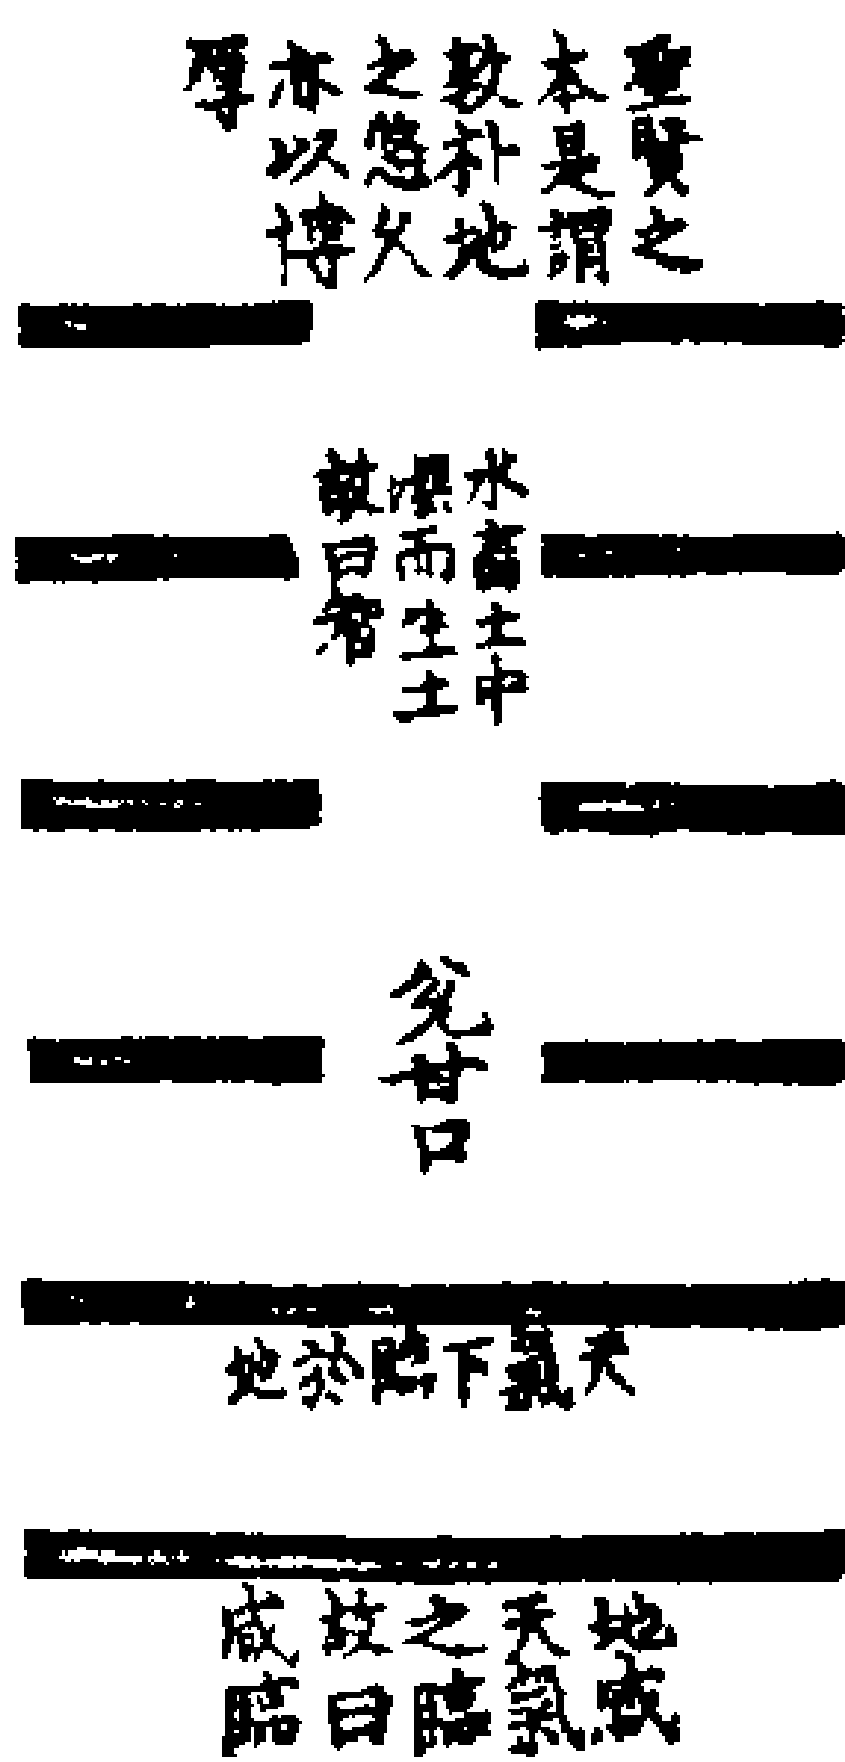 聖賢之
本是謂
敦朴地
之悠久
亦以博
厚
水畜土中
而生土
故曰智
兌甘口
天氣下臨於地
地感
天氣
之臨
故曰
咸臨